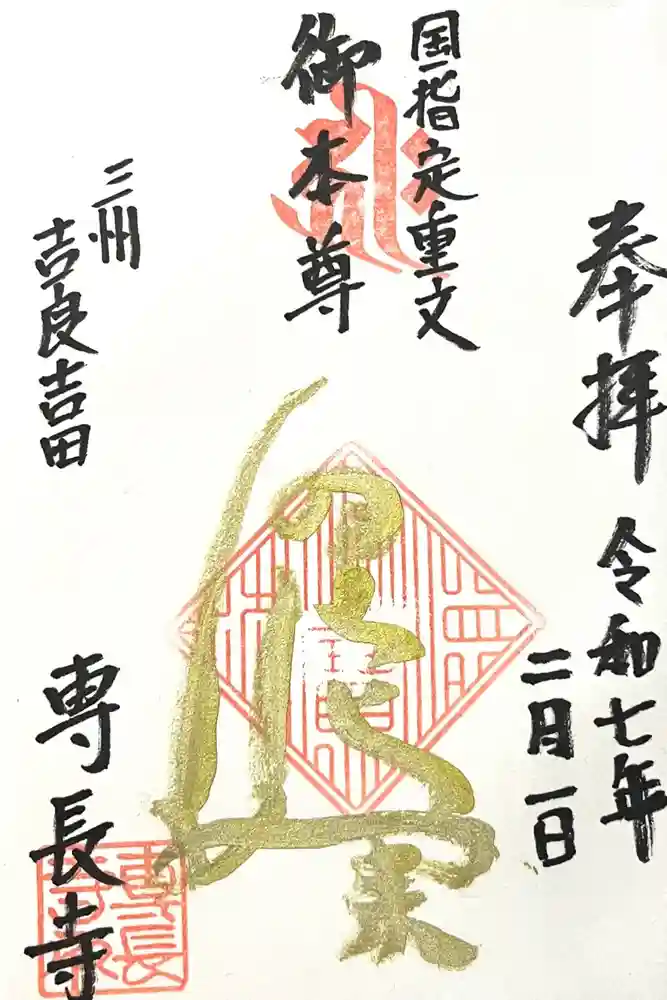 奉拝
令和七年
二月一日
国指定重文
御本尊
三州
吉良吉田
専長寺
専長